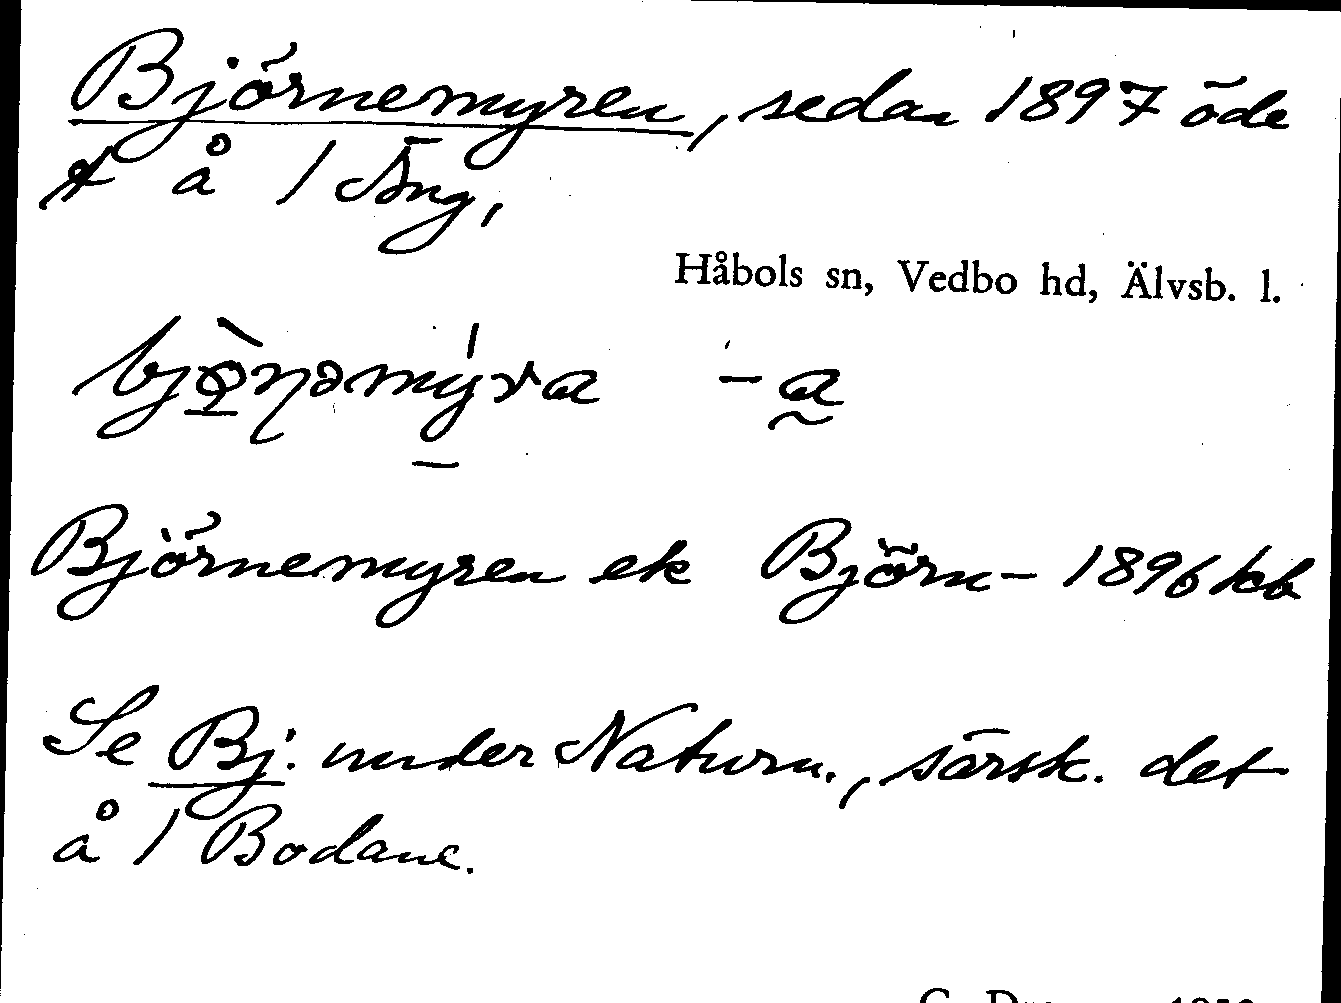 Björnemyren, sedan 1897 öde
t å 1 Äng,
Håbols sn, Vedbo hd, Älvsb. l.
- a
Björnemyren ek Björn- 1896 kb
Se Bj. under Naturn., särsk. det
å 1 Bodane.